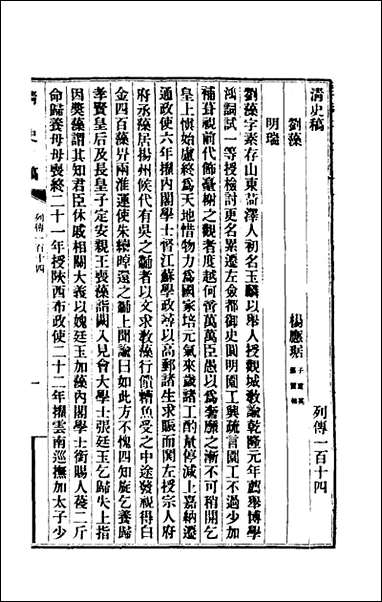 清史稿
列傳一百十四
劉藻
楊應琚
子重英
明瑞
劉藻字素存山東菏澤人初名玉麟以舉人授觀城教諭乾隆元年薦舉博學
鴻詞試一等授檢討更名累遷左僉都御史圓明園工興疏言園工不過少加
補葺視前代飾臺榭之觀者度越何啻萬萬臣愚以爲奢靡之漸不可稍開乞
皇上懷始慮終爲天地惜物力爲國家培元氣來歲諸工酌量停減上嘉納遷
通政使六年擢內閣學士督江蘇學政尋以高郵諸生求賑而閧左授宗人府
府丞藻居揚州候代有吳之黼者以文求教藻行餽糟魚受之中途發視得白
金四百藻畀兩淮運使朱續晫還之黼上聞諭曰如此方不愧四知旋乞養歸
孝賢皇后及長皇子定安親王喪藻詣闕入見會大學士張廷玉乞歸失上指
因獎藻謂其知君臣休戚相關大義以媿廷玉加藻內閣學士銜賜人葠二斤
命歸養母母喪終二十一年授陝西布政使二十二年擢雲南巡撫加太子少
清史稿
列傳一百十四
一